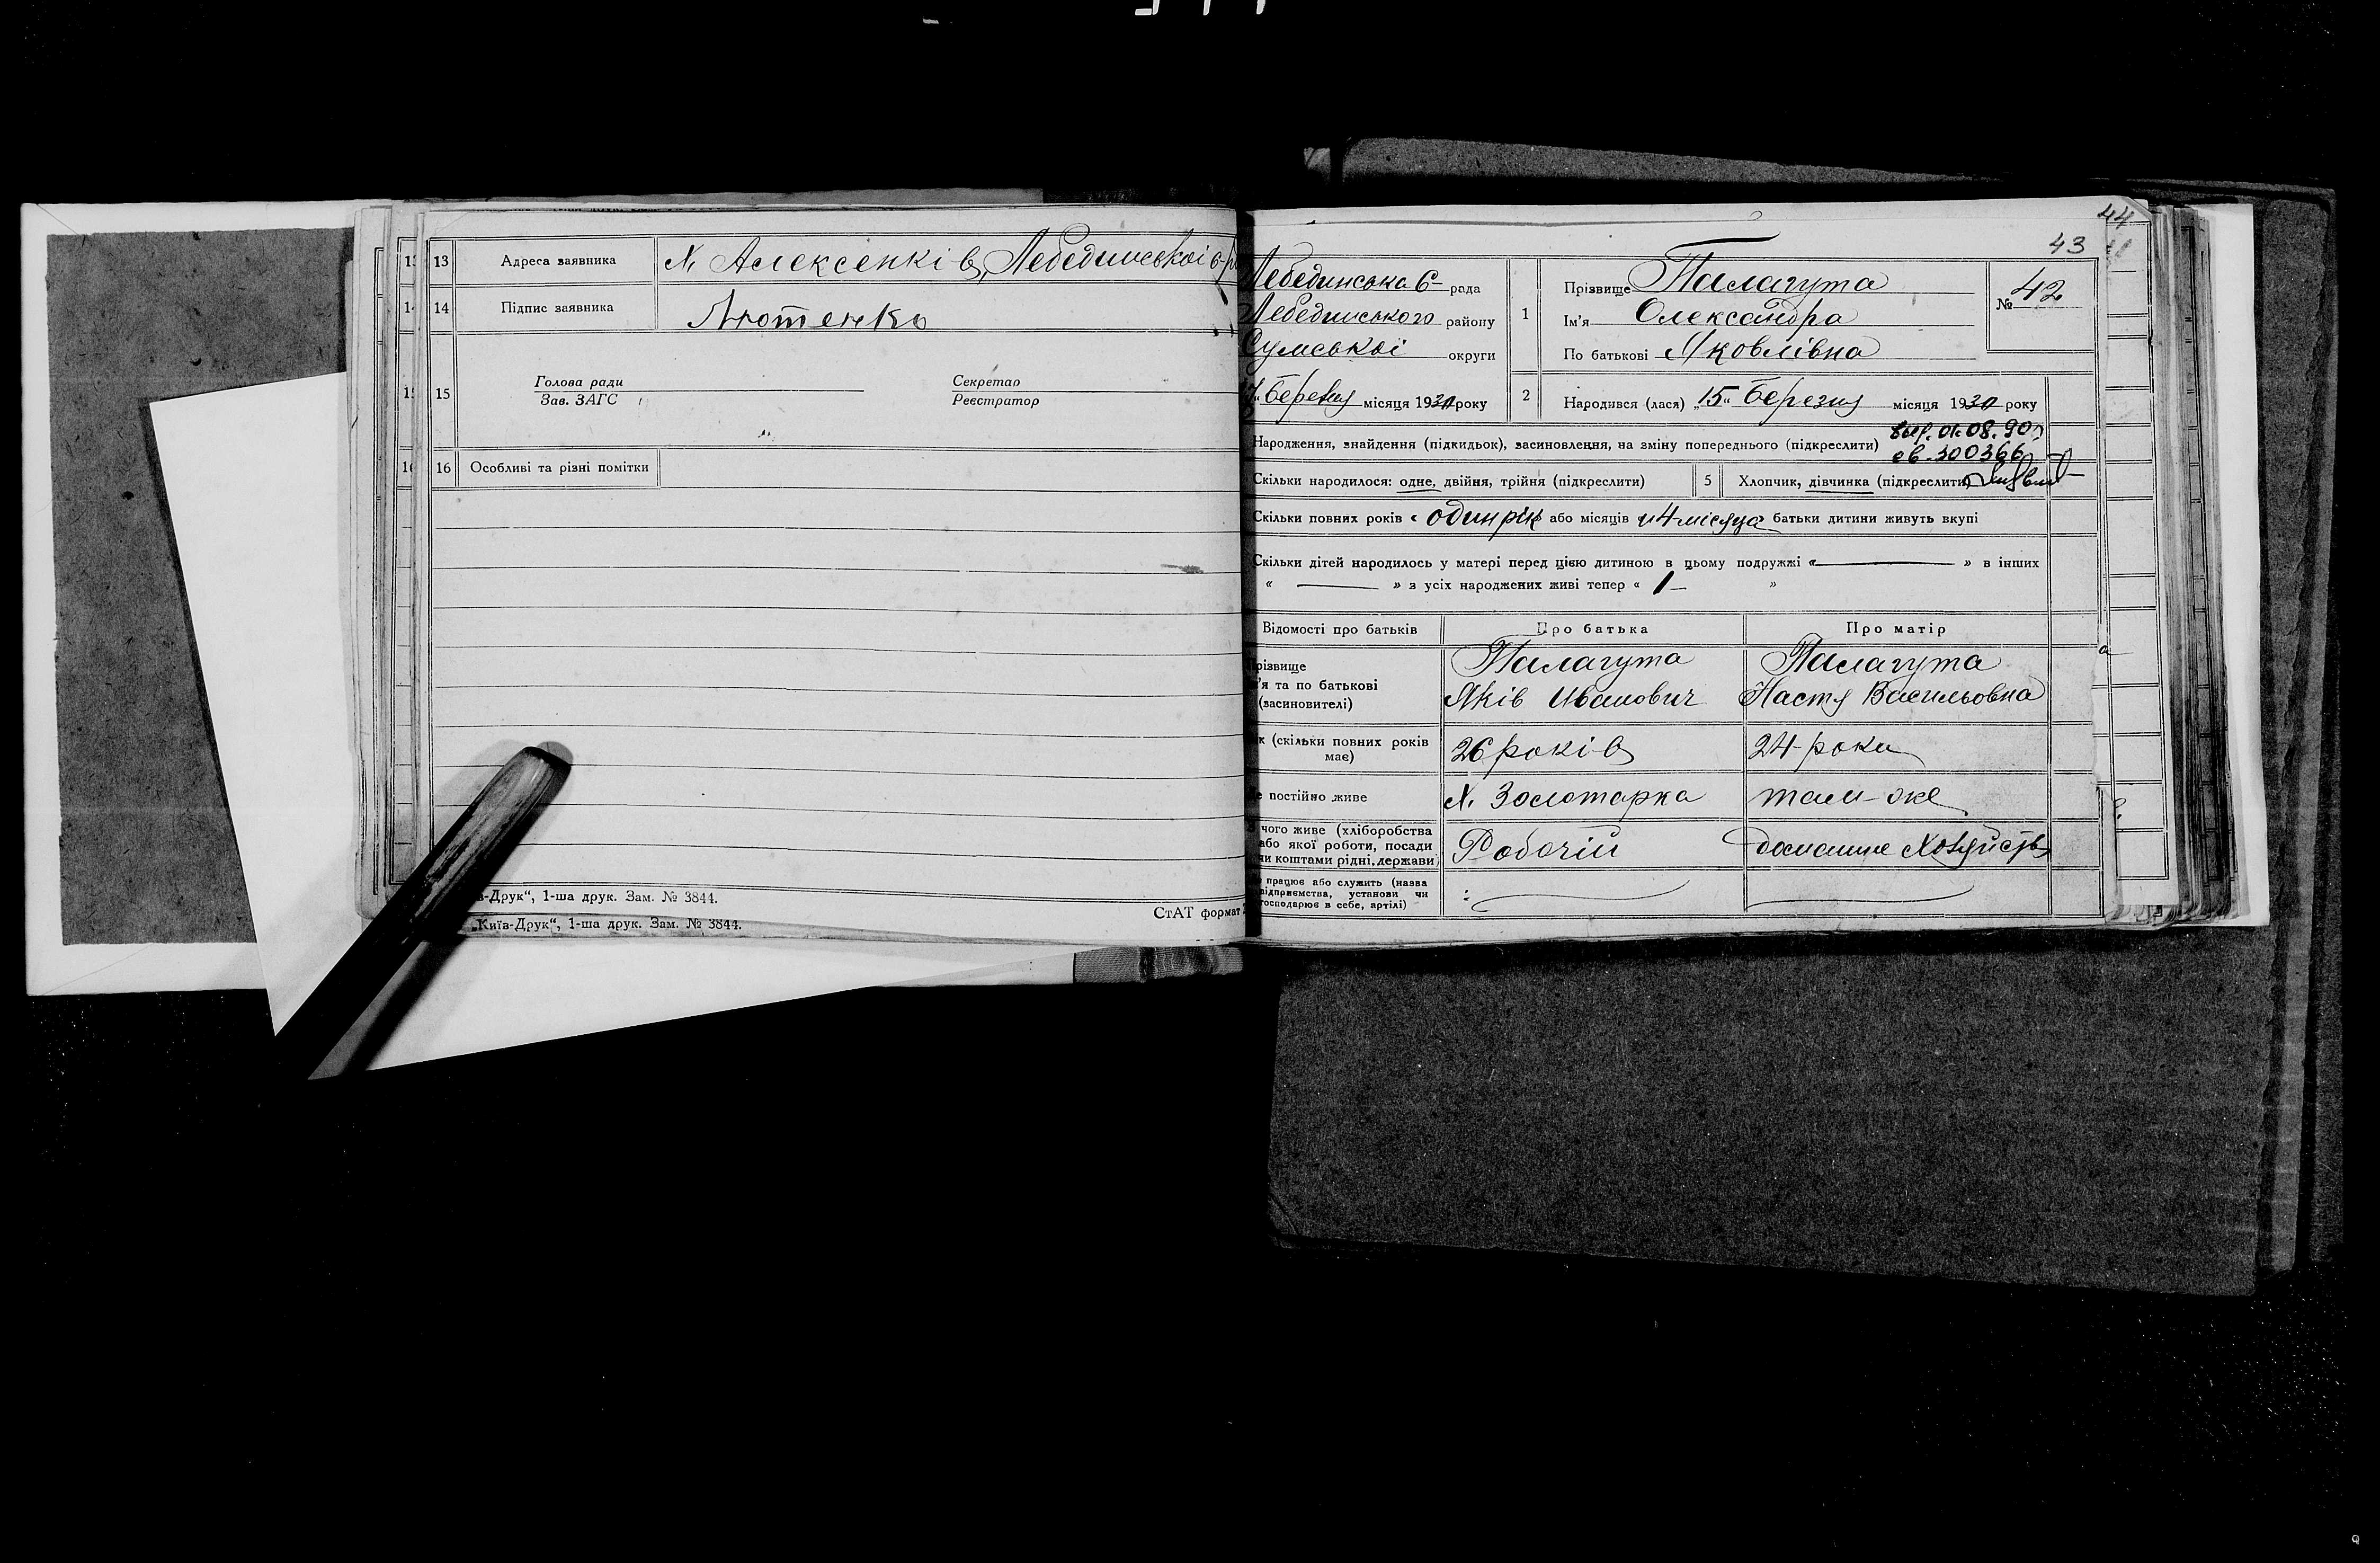 13 Адреса заявника х. Алексенків Лебединської с-р
14 Підпис заявника Лютенко
15 Голова ради Секретар
Зав. ЗАГС Реєстратор
16 Особливі та різні помітки
в-Друк“, 1-ша друк. Зам. № 3844.
СтАТ формат
„Київ-Друк“, 1-ша друк. Зам. № 3844.
44
43
Лебединська с- рада
Лебединського району
Сумської округи
„Березня місяця 1930 року
1 Прізвище Палагута
Ім'я Олександра
По батькові Яковлівна
№ 42
2 Народився (лася) „15“ Березня місяця 1930 року
Народження, знайдення (підкидьок), засиновлення, на зміну попереднього (підкреслити)
выд. 01.08.90
св. 300366
Скільки народилося: одне, двійня, трійня (підкреслити) 5 Хлопчик, дівчинка (підкреслити)
Скільки повних років « один рік» або місяців и 4 місяца батьки дитини живуть вкупі
Скільки дітей народилось у матері перед цією дитиною в цьому подружжі « — » в інших
« — » з усіх народжених живі тепер « 1 »
Відомості про батьків Про батька Про матір
різвище Палагута Палагута
'я та по батькові Яків Иванович Настя Васильовна
(засиновителі)
к (скільки повних років 26 років 24 роки
має)
е постійно живе х. Золотарка там-же
чого живе (хліборобства
або якої роботи, посади Робочій домашне
чи коштами рідні, держави)
працює або служить (назва
підприємства, установи чи
господарює в себе, артілі)